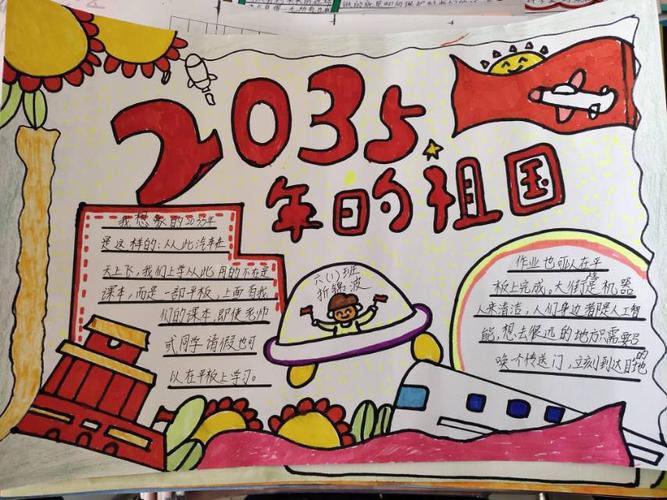 2035
年的祖国
我想象的2035年
是这样的:从此汽车在
天上飞,我们上学从此用的不在是
课本,而是一部平板,上面有我
们的课本,即使老师
或同学请假也可
以在平板上学习。
六(1)班
作业也可以在平
板上完成,大街是机器
人来清洁,人们身边都是人工智
能,想去很远的地方只需要
一个传送门,立刻到达目的地